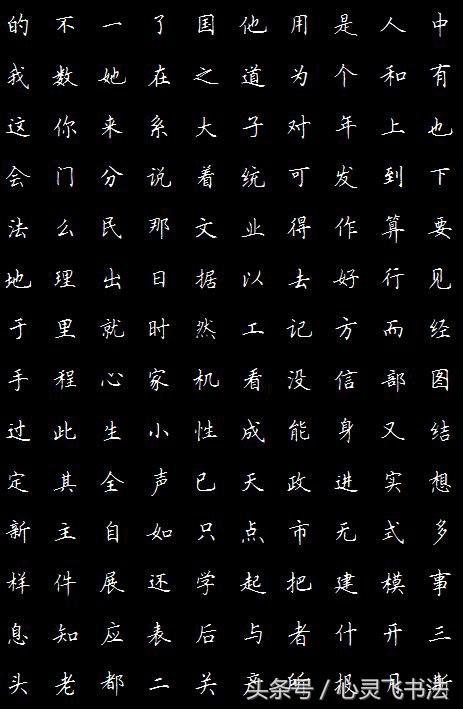 的 不 一 了 国 他 用 是 人 中
我 数 她 在 之 道 为 个 和 有
这 你 来 系 大 子 对 年 上 也
会 门 分 说 着 统 可 发 到 下
法 么 民 那 文 业 得 作 算 要
地 理 出 日 据 以 去 好 行 见
于 里 就 时 然 工 记 方 而 经
手 程 心 家 机 看 没 信 部 图
过 此 生 小 性 成 能 身 又 结
定 其 全 声 已 天 政 进 实 想
新 主 自 如 只 点 市 无 式 多
样 件 展 还 学 起 把 建 模 事
息 知 应 表 后 与 者 什 开 三
头 老 都 二 关 所 报 斯
头条号 / 心灵飞书法